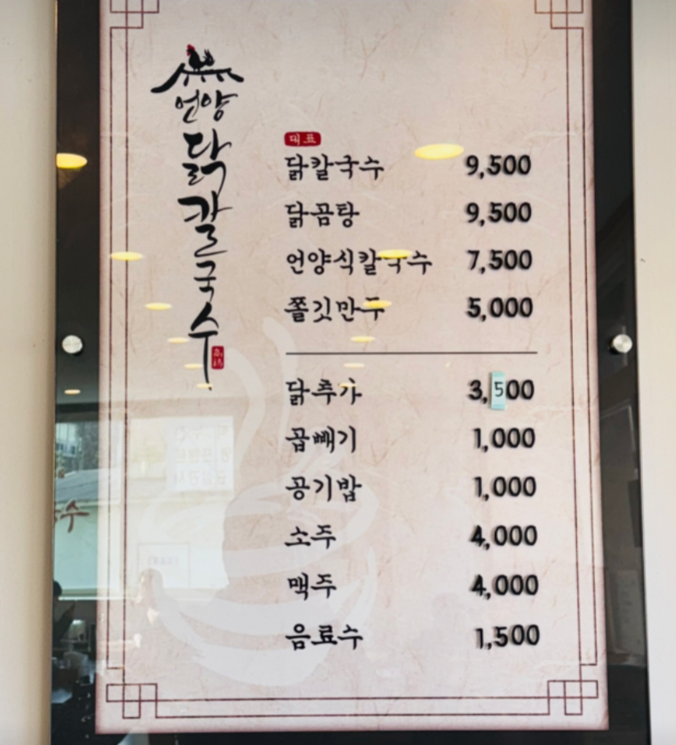 언양
닭칼국수
대표
닭칼국수 9,500
닭곰탕 9,500
언양식칼국수 7,500
쫄깃만두 5,000
닭추가 3,500
곱빼기 1,000
공기밥 1,000
소주 4,000
맥주 4,000
음료수 1,500